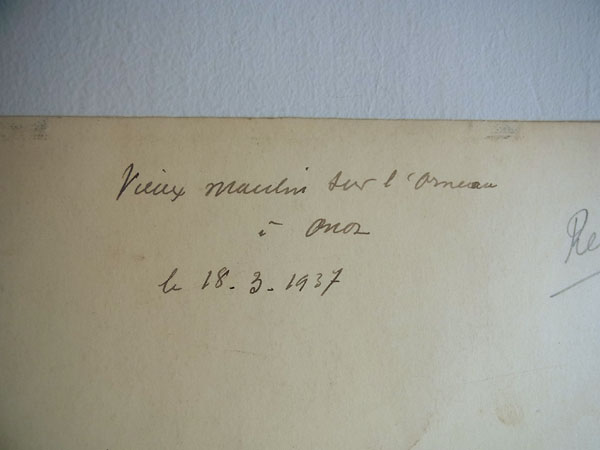 Vieux moulin sur l'Orneau
à Onoz
le 18.3.1937
Re